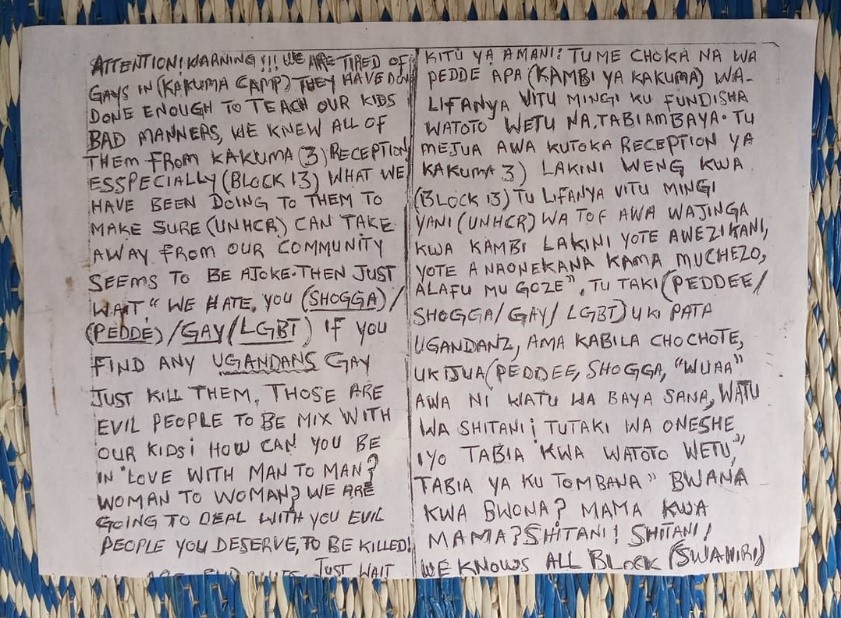 ATTENTION! WARNING!!! WE ARE TIRED OF
GAYS IN (KAKUMA CAMP) THEY HAVE DON
DONE ENOUGH TO TEACH OUR KIDS
BAD MANNERS, WE KNEW ALL OF
THEM FROM KAKUMA (3) RECEPTION
ESSPECIALLY (BLOCK 13) WHAT WE
HAVE BEEN DOING TO THEM TO
MAKE SURE (UNHCR) CAN TAKE
AWAY FROM OUR COMMUNITY
SEEMS TO BE A JOKE. THEN JUST
WAIT." WE HATE. YOU (SHOGGA)/
(PEDDE)/GAY/LGBT) IF YOU
FIND ANY UGANDANS GAY
JUST KILL THEM. THOSE ARE
EVIL PEOPLE TO BE MIX WITH
OUR KIDS! HOW CAN YOU BE
IN "LOVE WITH MAN TO MAN?
WOMAN TO WOMAN? WE ARE
GOING TO DEAL WITH YOU EVIL
PEOPLE YOU DESERVE, TO BE KILLED!
JUST WAIT
KITU YA AMANI! TUME CHOKA NA WA
PEDDE APA (KAMBI YA KAKUMA) WA-
LIFANYA VITU MINGI KU FUNDISHA
WATOTO WETU NA, TABIAMBAYA. TU
MEJUA AWA KUTOKA RECEPTION YA
KAKUMA 3) LAKINI WENG KWA
(BLOCK 13) TU LIFANYA VITU MINGI
YANI (UNHCR) WA TOF AWA WAJINGA
KWA KAMBI LAKINI YOTE AWEZIKANI,
YOTE ANAONEKANA KAMA MUCHEZO,
ALAFU MU GOZE". TU TAKI (PEDDEE/
SHOGGA/GAY/LGBT) UKI PATA
UGANDANZ, AMA KABILA CHOCHOTE,
UKIJUA (PEDDEE, SHOGGA, "WUAA"
AWA NI WATU WA BAYA SANA, WATU
WA SHITANI! TUTAKI WA ONESHE
IYO TABIA "KWA WATOTO WETU,"
TABIA YA KU TOMBANA" BWANA
KWA BWONA? MAMA KWA
MAMA? SHITANI! SHITANI!
WE KNOWS ALL BLOCK (SWAHIRI)